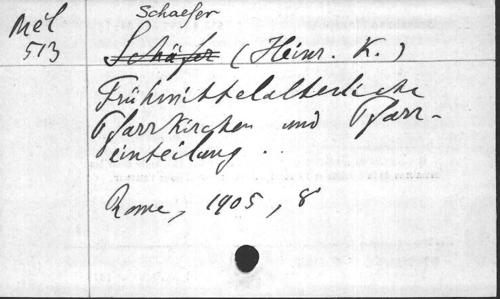 Schaefer
Mél
513
Schäfer (Heinr. K.)
Frühmittelalterliche
Pfarrkirchen und Pfarr-
einteilung ..
Rome, 1905, 8°